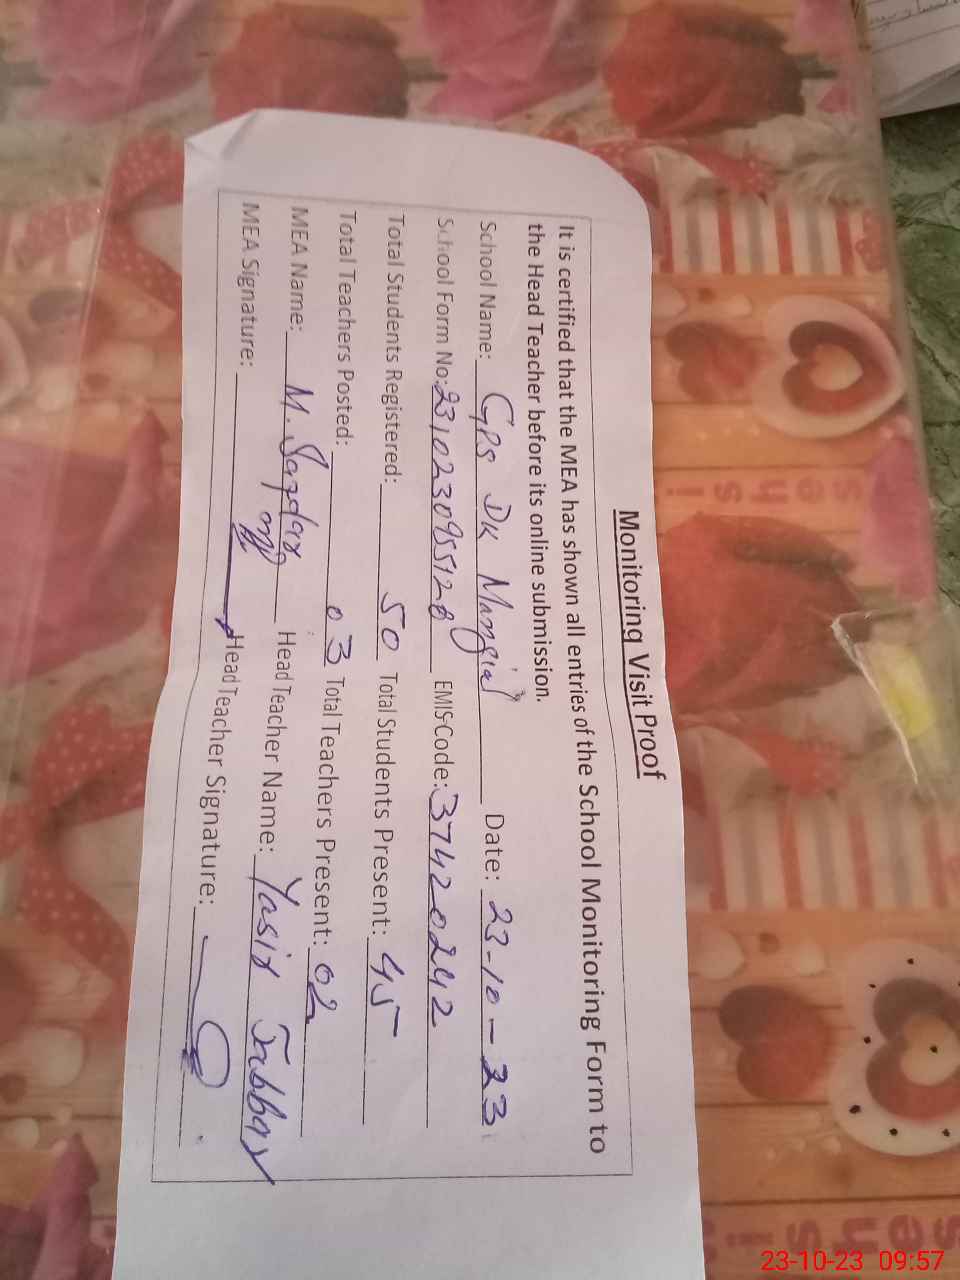 Monitoring Visit Proof
It is certified that the MEA has shown all entries of the School Monitoring Form to
the Head Teacher before its online submission.
School Name: GPS DK Mangial Date: 23-10-23
School Form No: 231023095128 EMIS Code: 37420242
Total Students Registered: 50 Total Students Present: 45
Total Teachers Posted: 03 Total Teachers Present: 02
MEA Name: M. Safdar Head Teacher Name: Yasir Jabbar
MEA Signature: Head Teacher Signature:
23-10-23 09:57